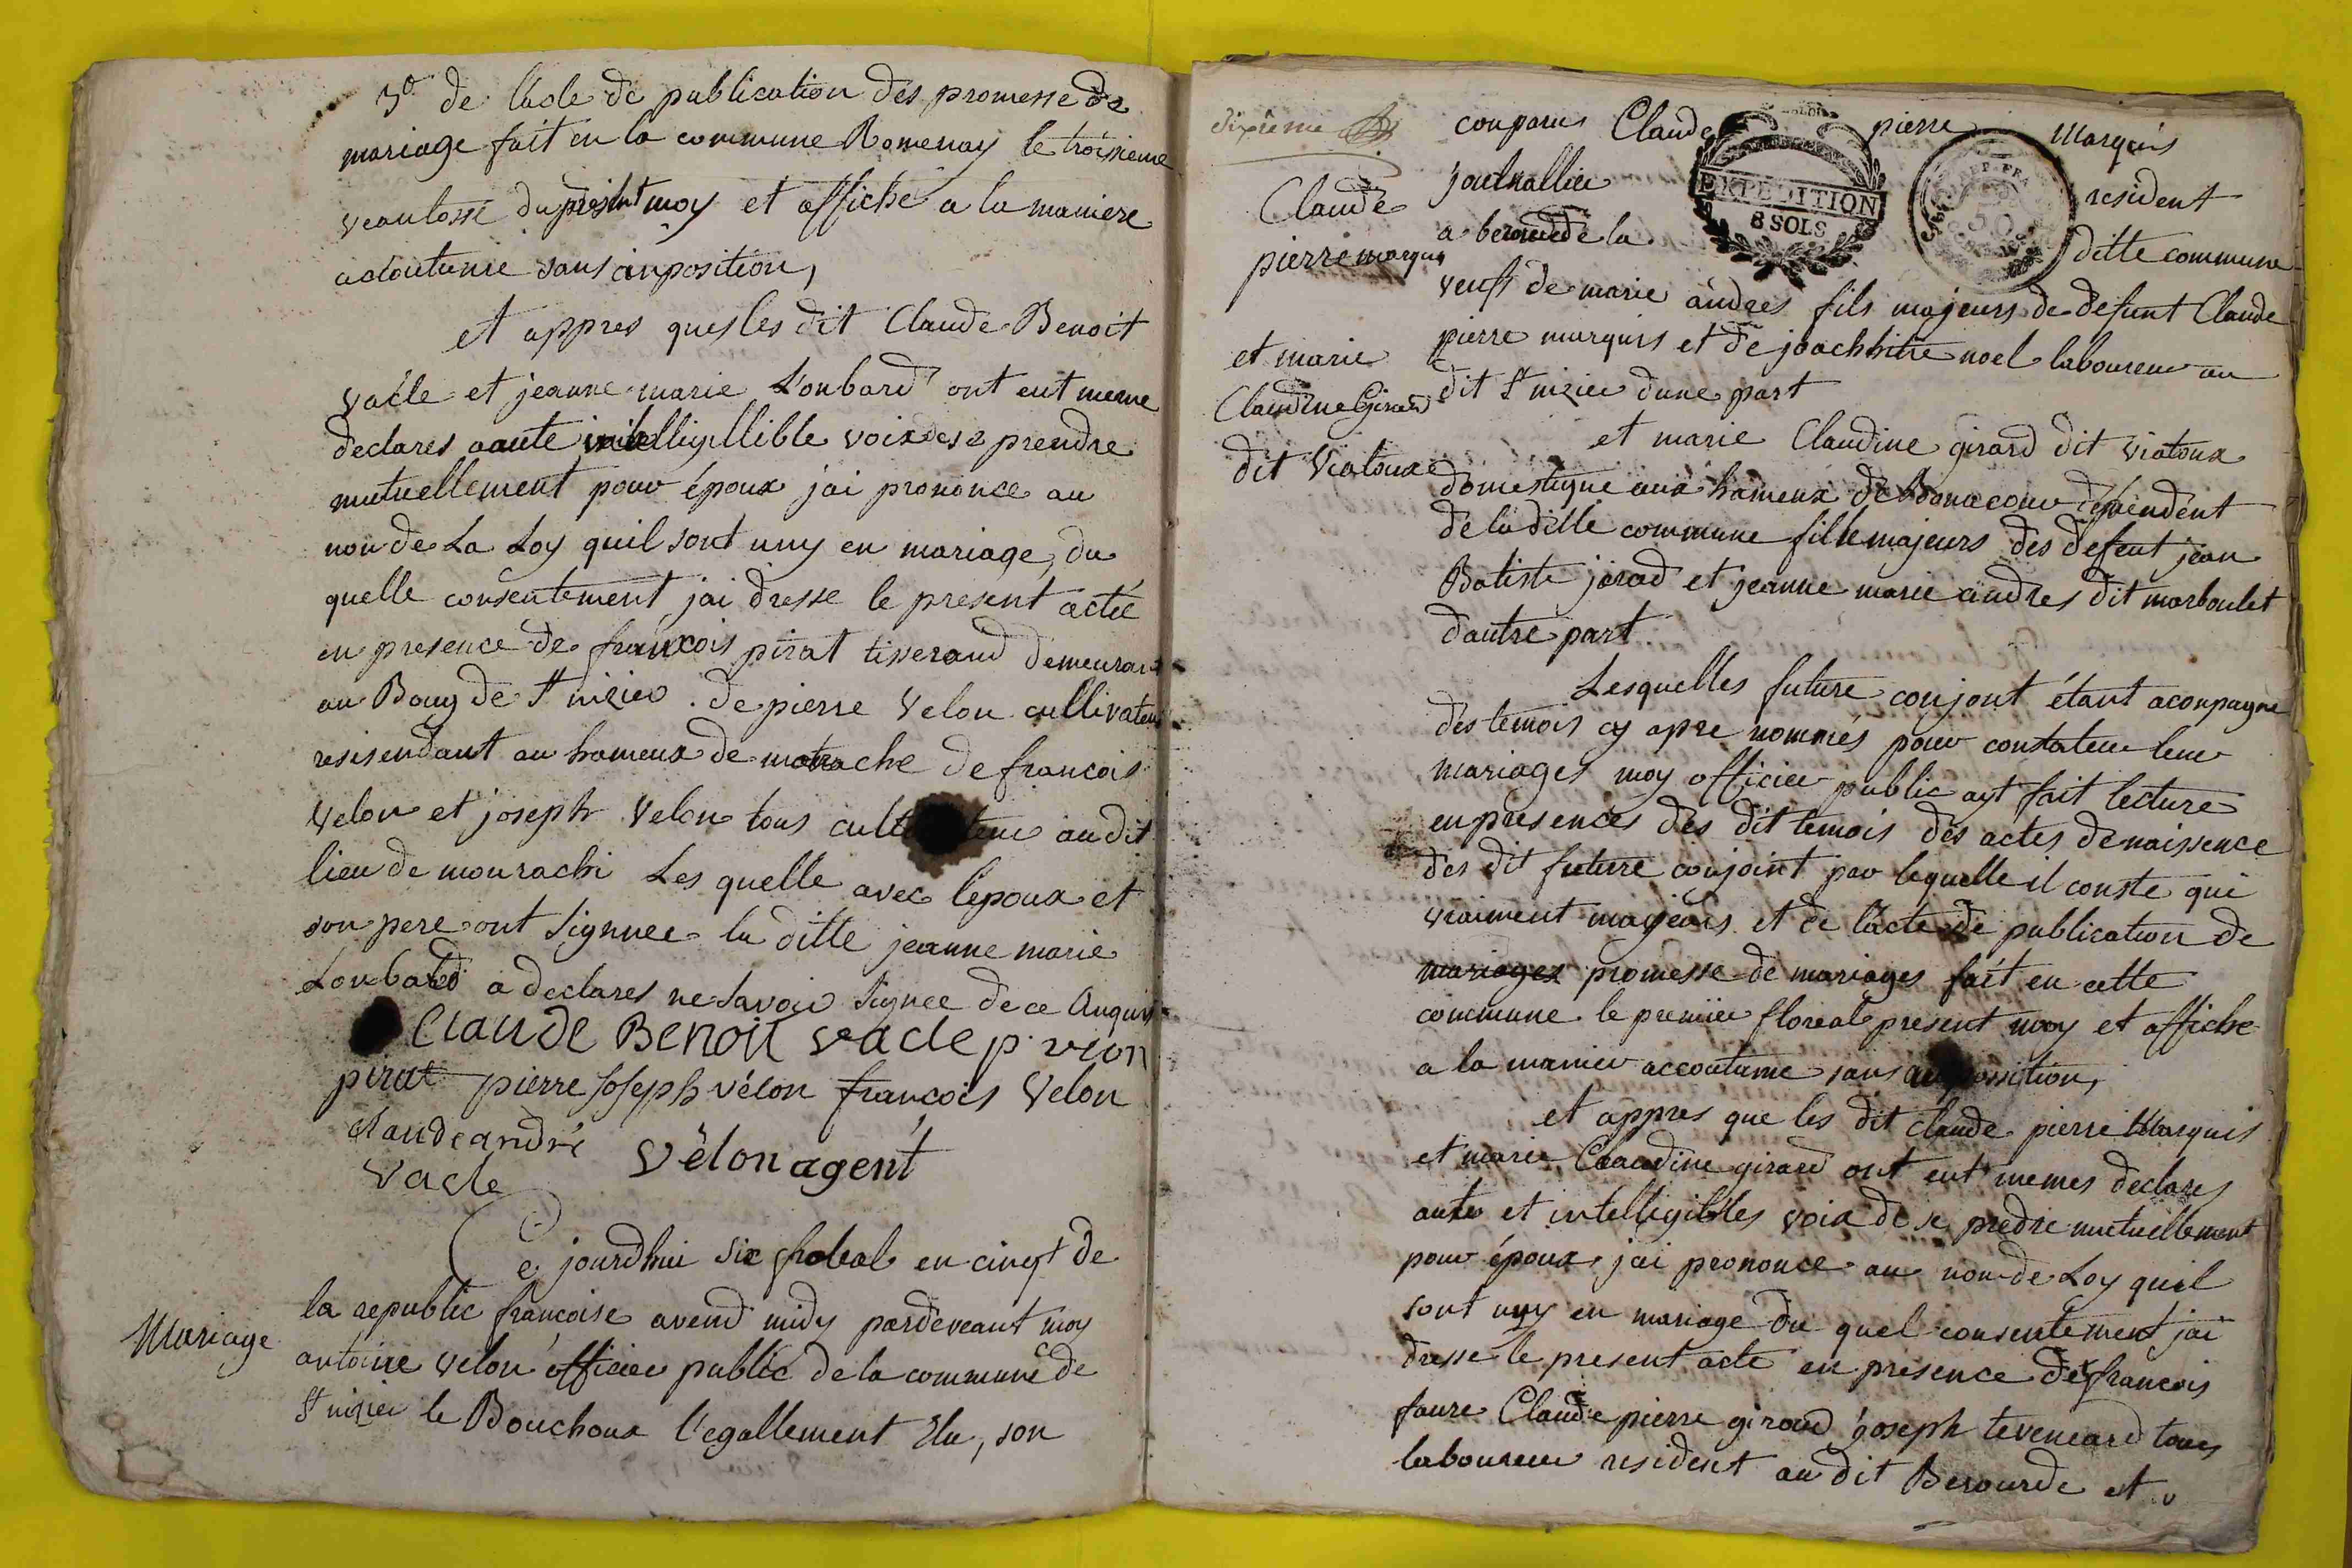 3º de lacte de publication des promesse de
mariage fait en la commune Romenay le troisieme
du present moy et affiche a la maniere
acoutumé sans
et appres ques les dit Claude Benoit
vacle et jeanne marie Lonbard ont eut meme
declares aaute voix de se prendre
mutuellement pour époux jai prononce au
non de La Loy quil sont uny en mariage, du
quelle consentement jai dresse le present acte
en presence de francois pirat tisserand demeurant
au Bourg de St nizier . de pierre Velon cultivateur
resisendant au hameux de de francois
Velon et joseph Velon tous au dit
lieu de mourachi Les quelle avec lepoux et
son pere ont Signuee la ditte jeanne marie
Lonbard a declares ne Savoir Signee de ce
Claude Benoit vacle p. vion
pirat pierre Joseph vélon francois Velon
claude andré
vacle
Vélon agent
Ce jourdhui six floreal en cinqt de
la republic francoise avend midy pardeveant moy
Mariage
antoine velon officier public de la commune de
St nizier le Bouchoux l'egallement Elu, son
dixième
conparus Claude pierre Marquis
journallier resident
a beroude de la ditte commune
EXPÉDITION
8 SOLS
Claude
pierre marquis
et marie
Claudine Girard
dit Viatoux
veuft de marie andres fils majeurs de defunt Claude
pierre marquis et de noel laboureur au
dit St nizier dune part
et marie Claudine girard dit viatoux
domestique aux hameux de dependent
de la ditte commune fille majeurs des defunt jean
Batiste jirard et jeanne marie andres dit marboulet
dautre part.
Lesquelles future conjont étant aconpagne
des temois cy apre nommés pour contateur leur
mariages moy officier public ayt fait lecture
en presences des dit temois des actes de naissence
des dit future conjoint par lequelle il conste qui
vraiment majeurs et de lacte de publication de
mariages promesse de mariages fait en cette
commune le premier floreal present moy et affiche
a la manier accoutume sans
et appres que les dit claude pierre Marquis
et marie Claudine girard ont eut memes declares
aute et intelligibles voix de se predre mutuellement
pour époux, jai prononce au non de Loy quil
sont uny en mariage du quel consentement jai
dresse le present acte en presence de francois
faure Claude pierre giroud joseph tevenard tous
laboureur resident au dit Berourde et